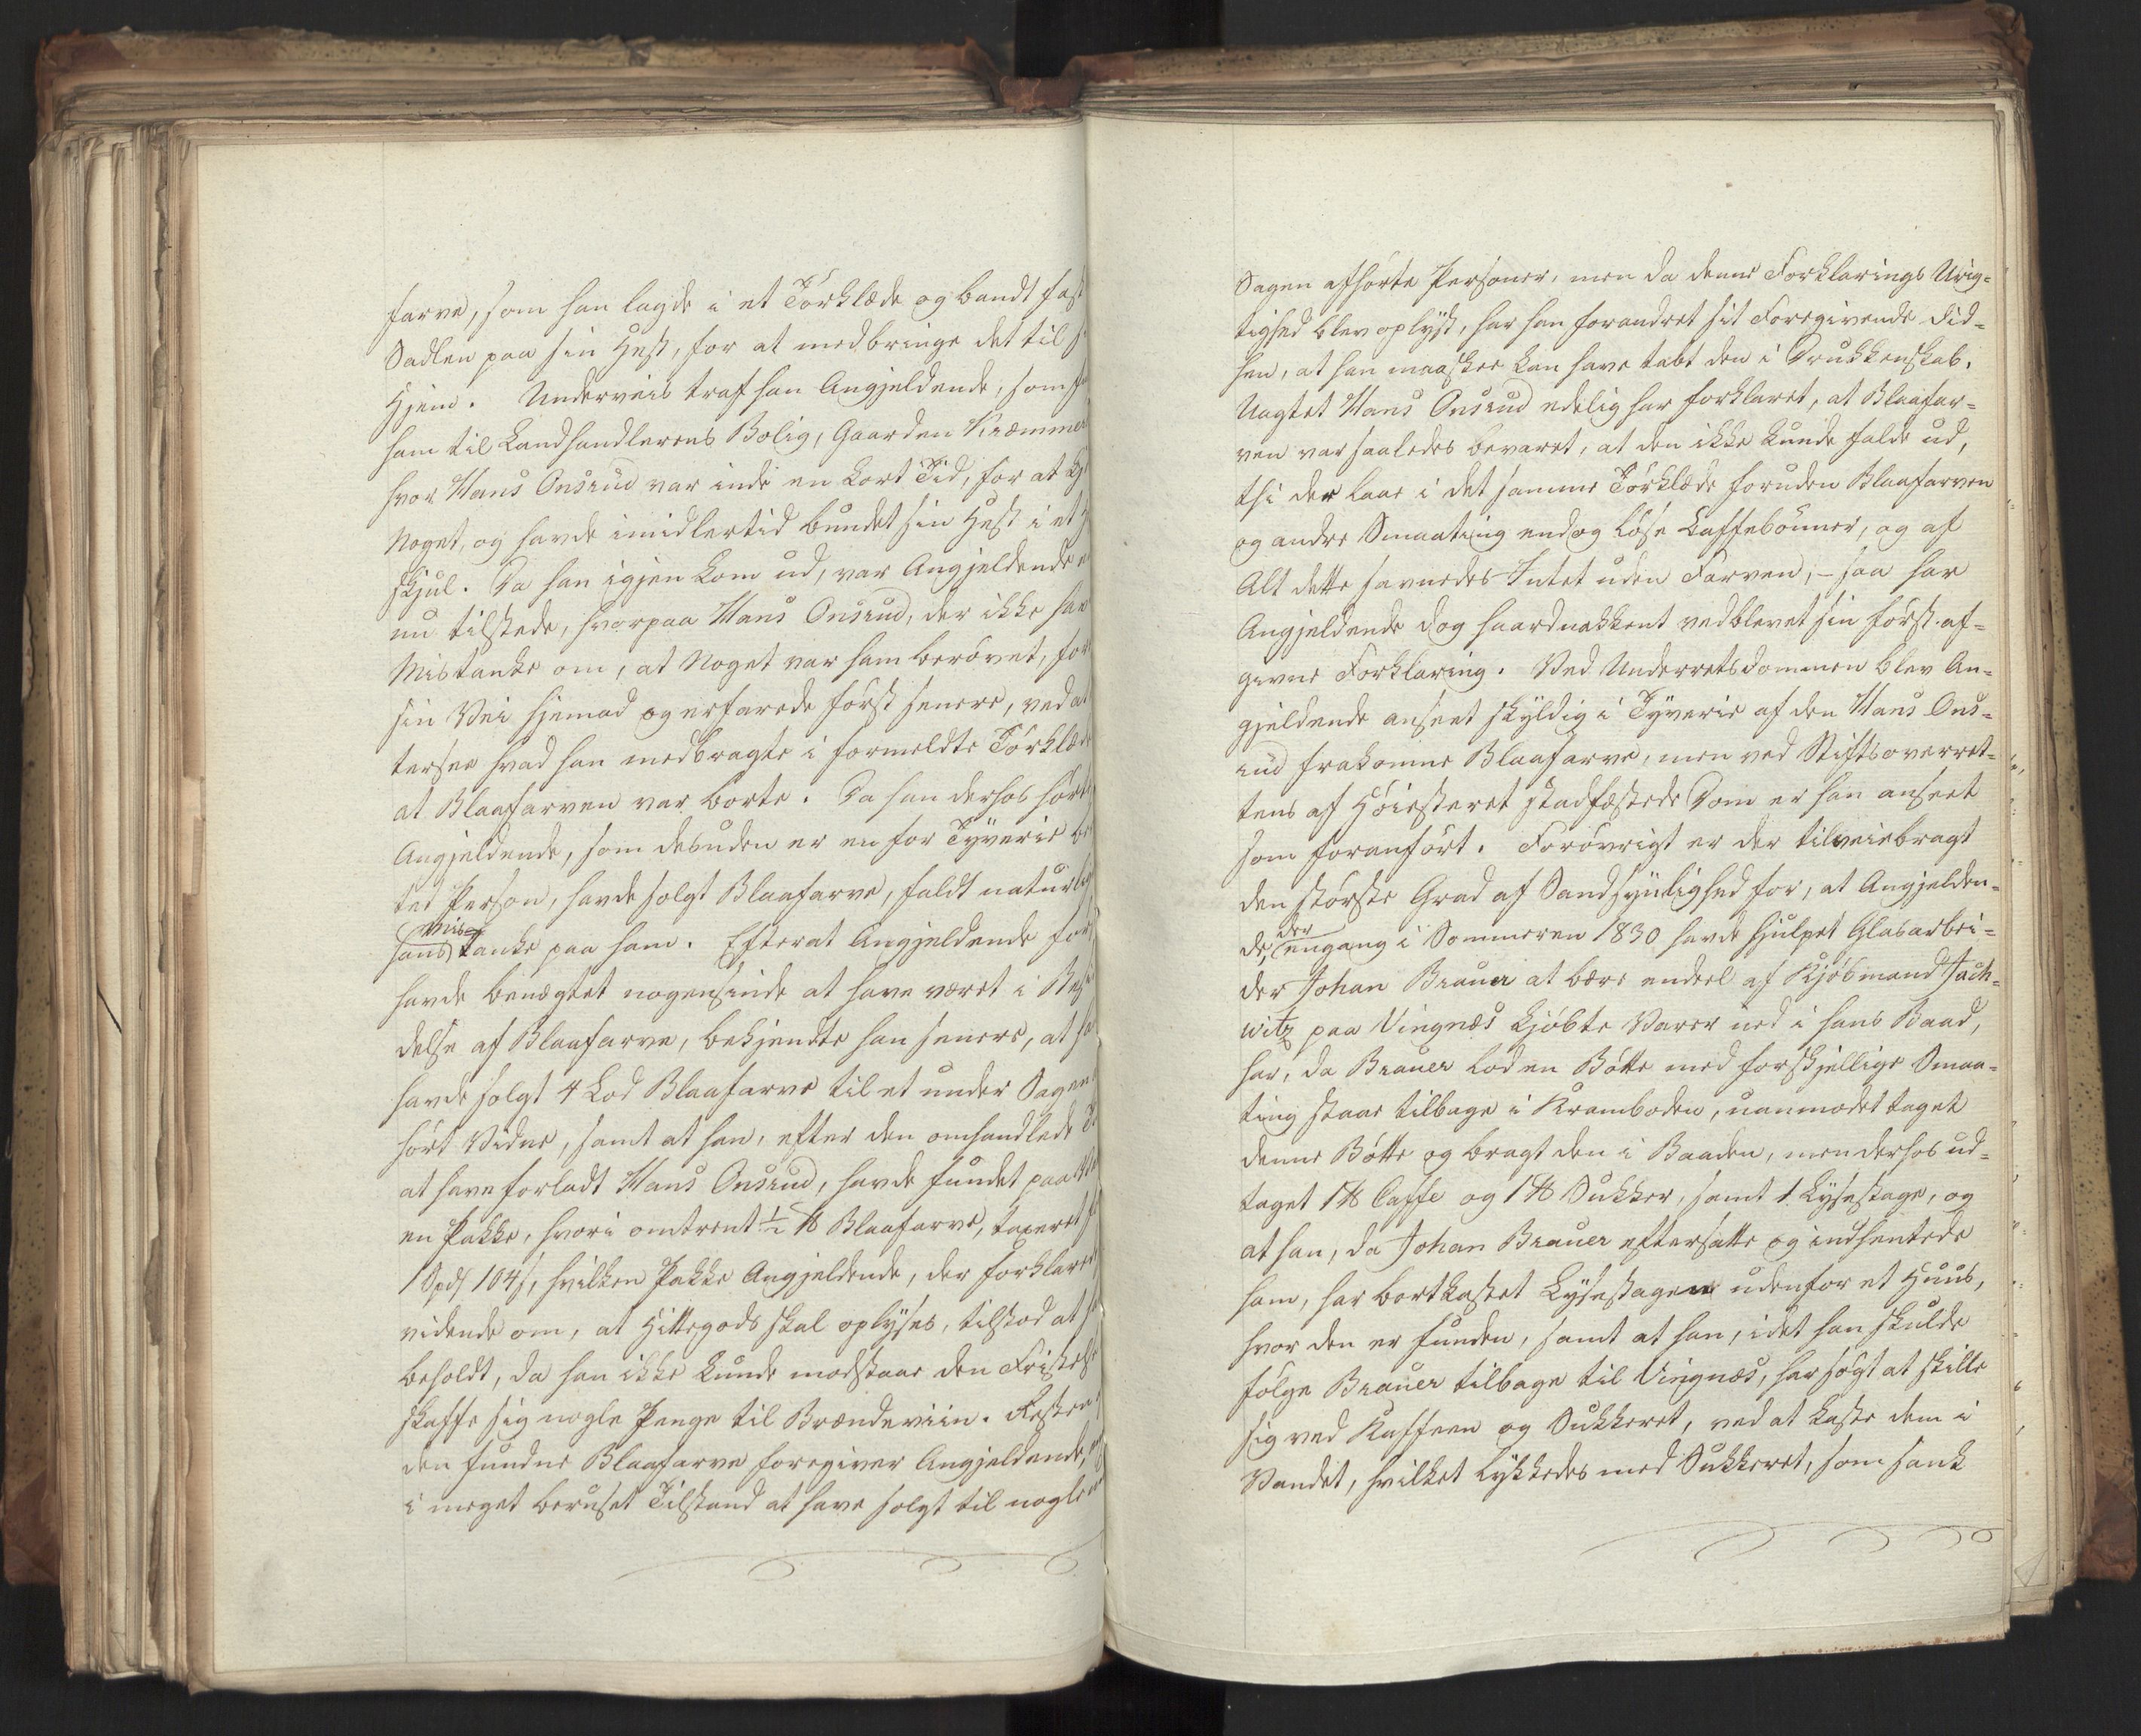 farve, som han lagde i et Törklæde og bandt fast
Sadlen paa sin Hest, for at medbringe det til
Hjem. Underveis traf han Angjeldende, som
ham til Landhandlerens Bolig, Gaarden Kræmmer
hvor Hans Onsrud var inde en kort Tid, for at
Noget, og havde imidlertid bundet sin Hest i et
Skjul. Da han igjen kom ud, var Angjeldende
nu tilstede, hvorpaa Hans Onsrud, der ikke
Mistanke om, at Noget var ham berövet, for
sin Vei hjemad og erfarede först senere, ved at
tersee hvad han medbragte i formeldte Törklæde
at Blaafarven var borte. Da han derhos hörte
Angjeldende, som desuden er en for Tyverie
tet Person, havde solgt Blaafarve, faldt naturlig
hans Mistanke paa ham. Efterat Angjeldende
havde benægtet nogensinde at have været i
delse af Blaafarve, bekjendte han senere, at
havde solgt 4 Lod Blaafarve til et under Sagen
hört Vidne, samt at han, efter den omhandlede
at have forladt Hans Onsrud, havde fundet paa
en Pakke, hvori omtrent ½ ℔ Blaafarve, taxeret
1 Spd 104 s, hvilken Pakke Angjeldende, der forklarede
vidende om, at Hittegods skal oplyses, tilstod at
beholdt, da han ikke kunde modstaae den Fristelse
skaffe sig nogle Penge til Brændeviin. Resten
den fundne Blaafarve foregiver Angjeldende,
i meget beruset Tilstand at have solgt til nogle
Sagen afhörte Personer, men da denne Forklarings Urig-
tighed blev oplyst, har han forandret sit Foregivende did-
hen, at han maaskee kan have tabt den i Drukkenskab.
Uagtet Hans Onsrud edelig har forklaret, at Blaafar-
ven var saaledes bevaret, at den ikke kunde falde ud,
thi der laae i det samme Törklæde foruden Blaafarven
og andre Smaating endog löse Caffebönner, og af
Alt dette savnedes Intet uden Farven, – saa har
Angjeldende dog haardnakkent vedblevet sin först af-
givne Forklaring. Ved Underretsdommen blev An-
gjeldende anseet skyldig i Tyverie af den Hans Ons-
rud frakomne Blaafarve, men ved Stiftsoverret-
tens af Höiesteret stadfæstede Dom er han anseet
som foranfört. Forövrigt er der tilveiebragt
den störste Grad af Sandsynlighed for, at Angjelden-
de, der engang i Sommeren 1830 havde hjulpet Glasarbei-
der Johan Brauer at bære endeel af Kjöbmand Jach-
witz paa Vingnæs kjöbte Varer ned i hans Baad,
har, da Brauer lod en Bötte med forskjellige Smaa-
ting staae tilbage i Kramboden, uanmodet taget
denne Bötte og bragt den i Baaden, men derhos ud-
taget 1 ℔ Caffe og 1 ℔ Sukker, samt 1 Lysestage, og
at han, da Johan Brauer eftersatte og indhentede
ham, har bortkastet Lysestagen udenfor et Huus,
hvor den er funden, samt at han, idet han skulde
fölge Brauer tilbage til Vingnæs, har sögt at skille
sig ved Kaffeen og Sukkeret, ved at kaste dem i
Vandet, hvilket lykkedes med Sukkeret, som sank